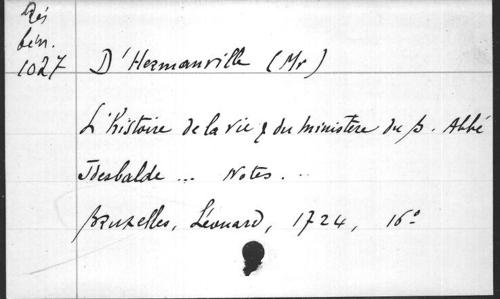 Rés
bén.
1027
D'Hermanville (Mr)
L'histoire de la vie & du ministere du b. Abbé
Idesbalde ... Notes...
Bruxelles, Léonard, 1724, 16°